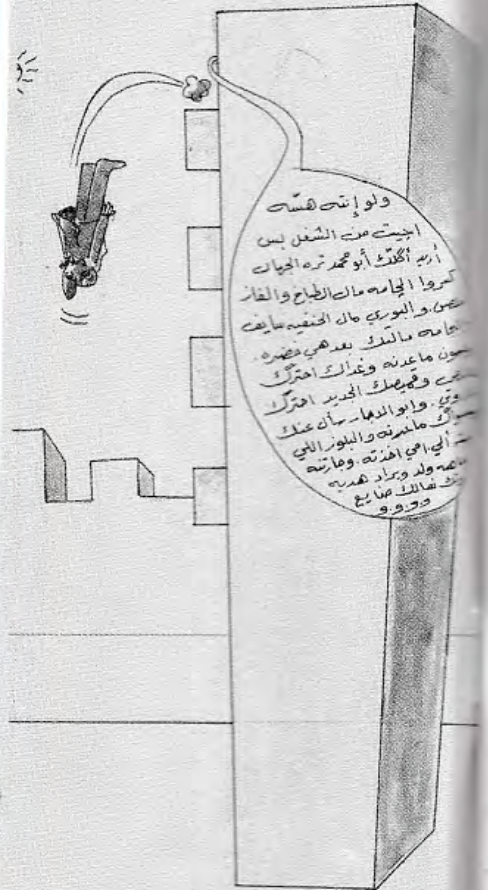 ولو إنته هسّه
اجيت من الشغل بس
أريد أكلّك أبو محمد تره الجهال
كسروا الجامه مال الطباخ والغاز
والبوري مال الحنفيه
مالتك بعدهي خضره.
ماعدنه وغداك احترك
وقميصك الجديد احترك
وابو الدجار سأل عنك
ماعدنه والبلوز اللي
امي اخذته. وجارتنه
ولد ويراد هديه
نعالك ضايع
و و و. و